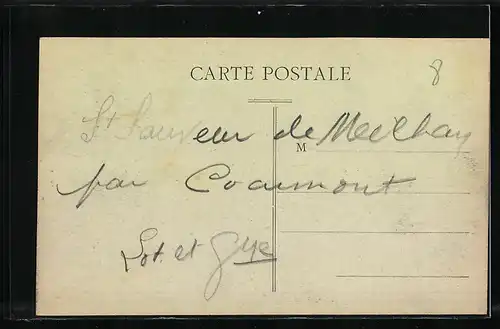 CARTE POSTALE
8
St Sauveur de Meilhan
M
par Coaumont
Lot et Gne